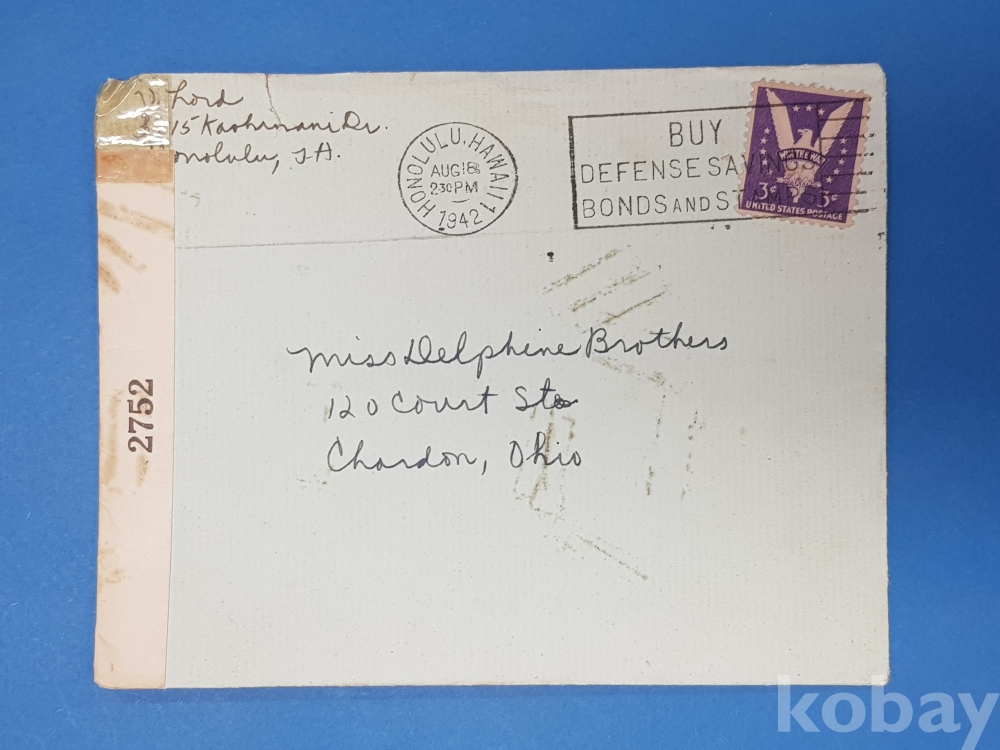 Lord
15 Kaohinani Dr.
onolulu, T.H.
HONOLULU, HAWAII 1
AUG 18
2 30 PM
1942
BUY
DEFENSE SAVINGS
BONDS AND STAMPS
WIN THE WAR
3¢ 3¢
UNITED STATES POSTAGE
Miss Delphine Brothers
120 Court St
Chardon, Ohio
2752
kobay